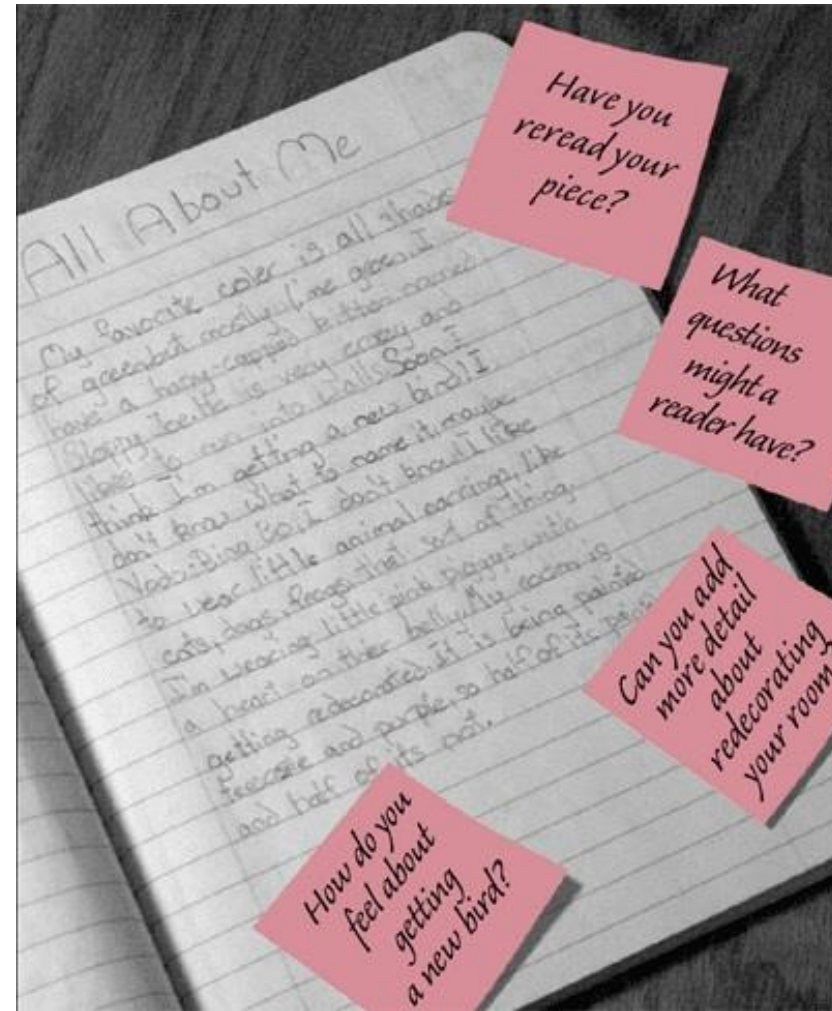 All About Me
My favorite coler is all shades
of green but mostly lime green. I
have a hany-capped kitten named
Sloppy Joe. He is very crazy and
likes to run into walls. Soon I
think I'm getting a new bird! I
don't know what to name it maybe
Bo. I don't know! I like
to wear little animal earrings, like
cats, dogs, frogs that sort of thing.
I'm wearing little pink piggys with
a heart on thier belly. My room is
getting redecorated. It is being painted
and purple, so half of its
and half of its not.
Have you
reread your
piece?
What
questions
might a
reader have?
Can you add
more detail
about
redecorating
your room
How do you
feel about
getting
a new bird?